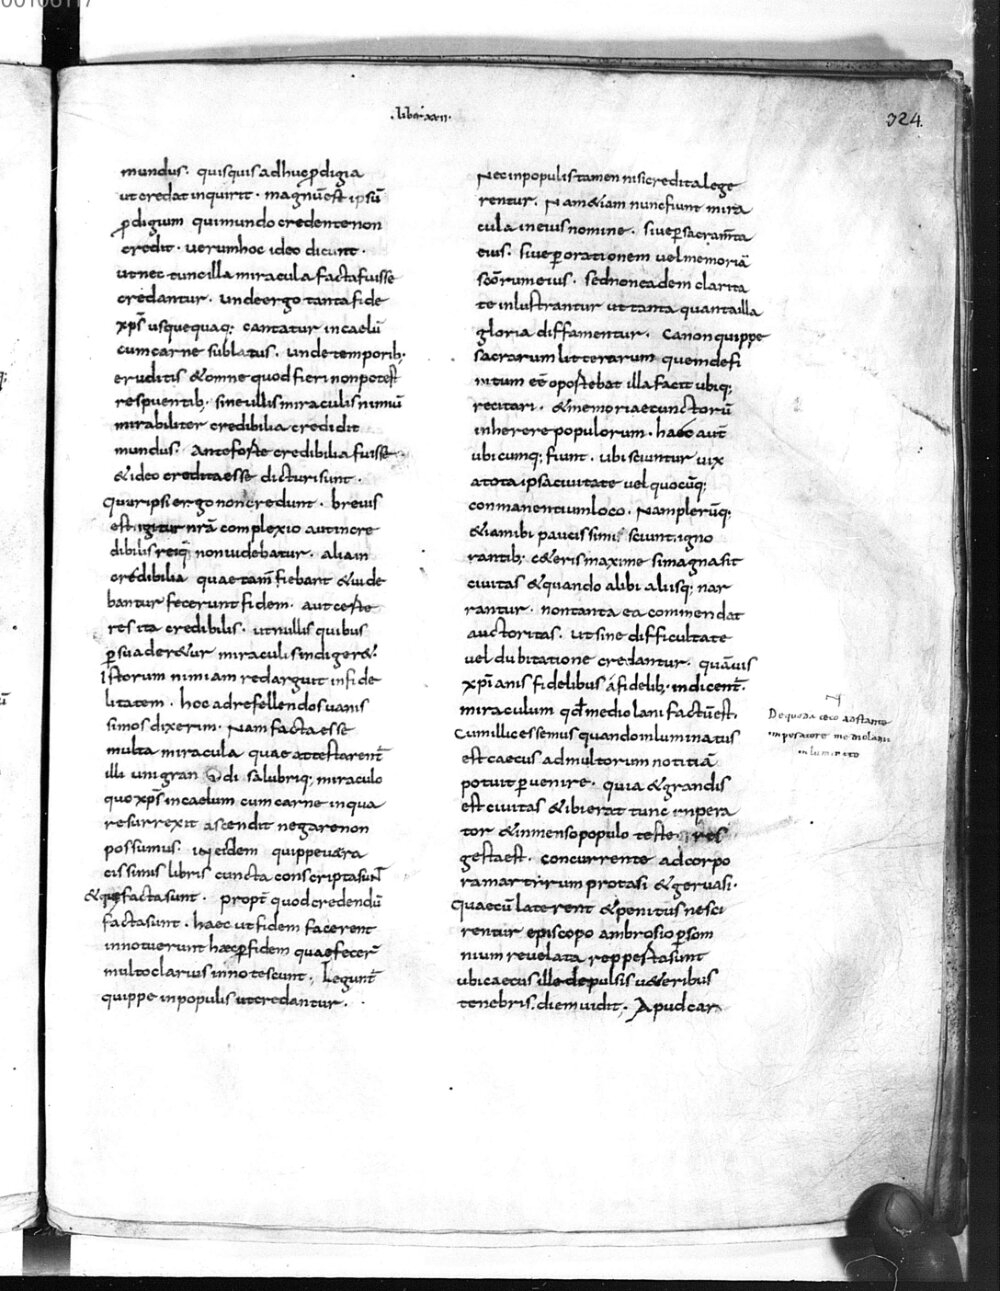 00106117
.liber xxii.
324.
mundus. quisquis adhuc ꝓdigia
ut credat inquirit. magnū est ipsū
ꝓdigium qui mundo credente non
credit. uerum hoc ideo dicunt.
ut nec tunc illa miracula facta fuisse
credantur. unde ergo tanta fide
xp̄s usquequaq; cantatur in caelū
cum carne sublatus. unde temporib;
eruditis & omne quod fieri non potest
respuentib; sine ullis miraculis nimiū
mirabiliter credibilia credidit
mundus. An te forte credibilia fuisse
& ideo credita esse dicturi sunt.
cur ipsi ergo non credunt. breuis
est igitur nr̄a complexio aut incre
dibilis rei q; non uidebatur. alia in
credibilia quae tam̄ fiebant & uide
bantur fecerunt fidem. aut certe
res ita credibilis. ut nullis quibus
ꝑsuader&ur miraculis indiger&.
Istorum nimiam redarguit infide
litatem. hoc ad refellendos uanis
simos dixerim. Nam facta esse
multa miracula quae attestarent̄
illi uni gran di salubriq; miraculo
quo xp̄s in caelum cum carne in qua
resurrexit ascendit negare non
possumus. in eisdem quippe uera
cissimis libris cuncta conscripta sunt
& quę facta sunt. propt̄ quod credendū
facta sunt. haec ut fidem facerent
innotuerunt haec ꝑ fidem quae fecer̄
multo clarius innotescunt. Legunt̄
quippe in populis ut credantur.
Nec in populis tamen nisi credita lege
rentur. Nam &iam nunc fiunt mira
cula in eius nomine. siue ꝑ sacram̄ta
eius. siue ꝑ orationem uel memoriā
sc̄orum eius. sed non eadem clarita
te inlustrantur ut tanta quanta illa
gloria diffamentur. Canon quippe
sacrarum litterarum quem defi
nitum eē oportebat illa facit ubiq;
recitari. & memoriae cunctorū
inherere populorum. haec aut̄
ubicumq; fiunt. ubi sciuntur uix
a tota ipsa ciuitate uel quocūq;
conmanentium loco. Nam plerūq;
&iam ibi paucissimi sciunt. igno
rantib; c&eris maxime si magna sit
ciuitas & quando alibi aliisq; nar
rantur. non tanta ea commendat
auctoritas. ut sine difficultate
uel dubitatione credantur. quāuis
xp̄ianis fidelibus a fidelib; indicent̄.
miraculum qd̄ mediolani factū est.
Cum illic essemus quando inluminatus
est caecus ad multorum notitiā
potuit ꝑuenire. quia & grandis
est ciuitas & ibi erat tunc inpera
tor & inmenso populo teste. res
gesta est. concurrente ad corpo
ra martyrum protasi & geruasi.
Quae cū laterent & penitus nesci
rentur episcopo ambrosio ꝑ som
nium reuelata reppesta sunt
ubi caecus ille depulsis u&eribus
tenebris. diem uidit. Apud car
De quodā ceco adstante
imperatore mediolani
inluminato